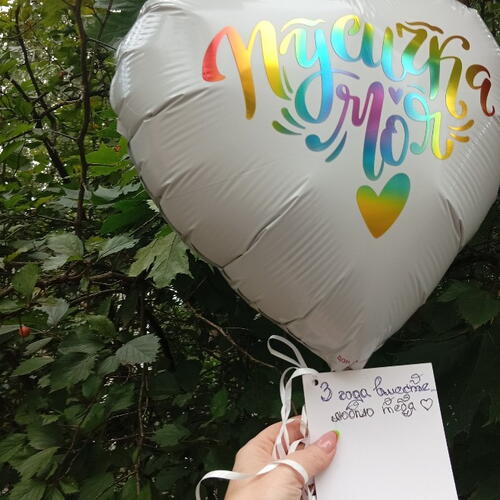 Пусичка
моя
3 года вместе
люблю тебя ♡